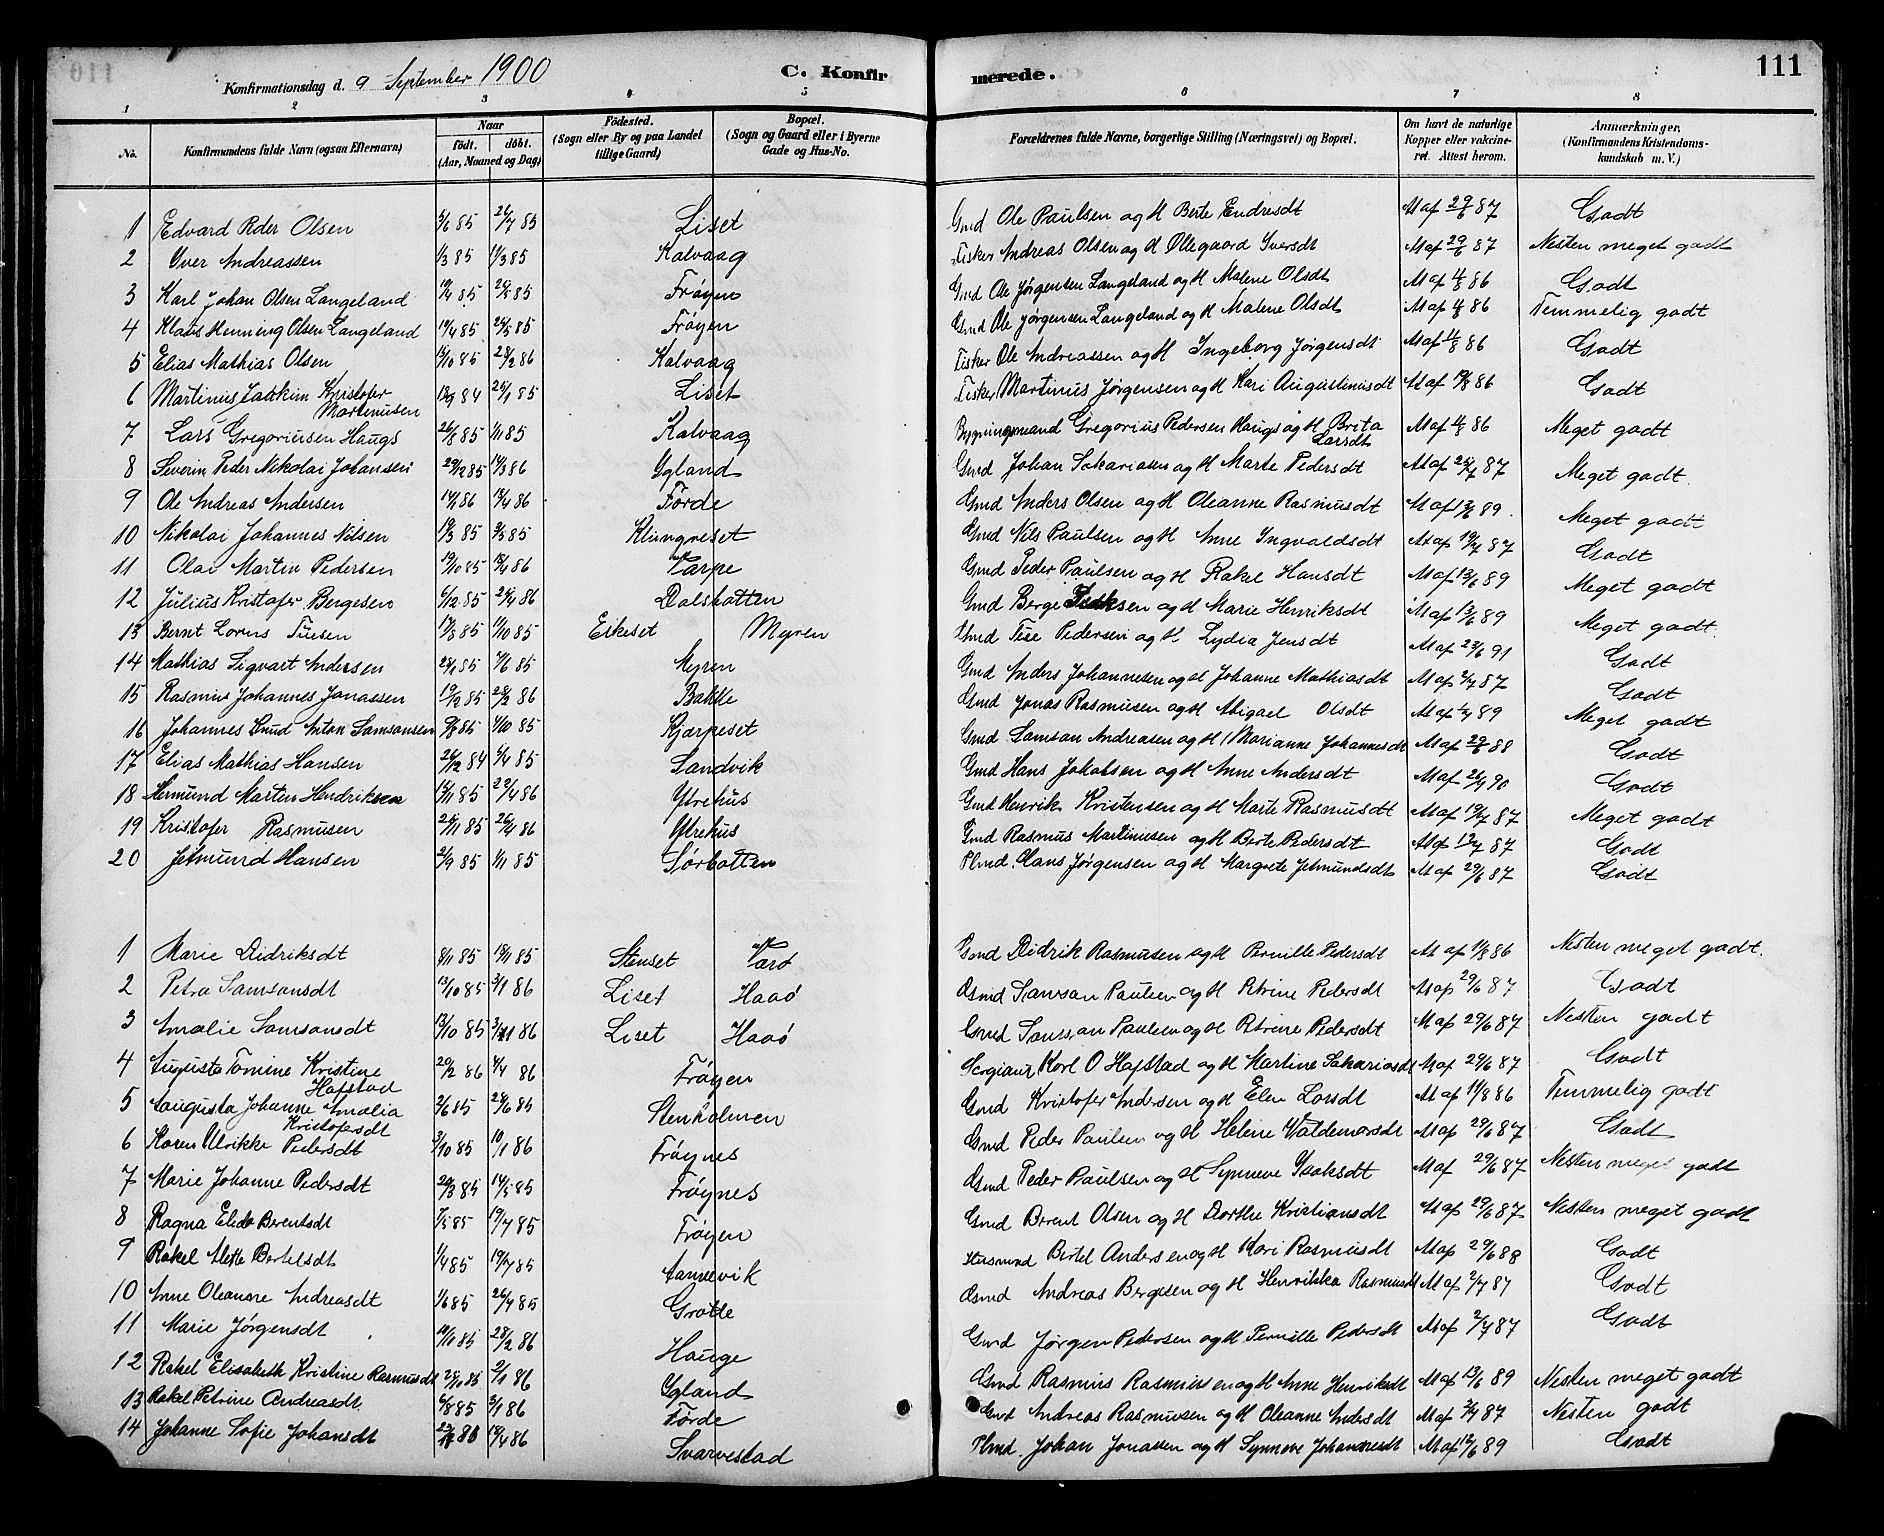 111
Konfirmationsdag d. 9 September 1900 C. Konfirmerede.
1 2 3 4 5 6 7 8
No. Konfirmandens fulde Navn (ogsaa Efternavn) Naar födt. döbt. (Aar, Maaned og Dag) Födested. (Sogn eller By og paa Landet tillige Gaard) Bopæl. (Sogn og Gaard eller i Byerne Gade og Hus-No. Forældrenes fulde Navne, borgerlige Stilling (Næringsvei) og Bopæl. Om havt de naturlige Kopper eller vakcineret. Attest herom. Anmærkninger. (Konfirmandens Kristendomskundskab m. V.)
1 Edvard Peder Olsen 5/6 85 26/7 85 Liset Gmd Ole Paulsen og H Berte Endresdt M af 29/6 87 Godt
2 Yver Andreassen 1/3 85 11/3 85 Kalvaag Fisker Andreas Olsen og H Ollegaard Iversdt M af 29/6 87 Nesten meget godt
3 Karl Johan Olsen Langeland 19/4 85 25/5 85 Frøyen Gmd Ole Jørgensen Langeland og H Malene Olsdt M af 4/8 86 Godt
4 Klaus Henning Olsen Langeland 19/4 85 25/5 85 Frøyen Gmd Ole Jørgensen Langeland og H Malene Olsdt M af 4/8 86 Temmelig godt
5 Elias Mathias Olsen 15/10 85 28/2 86 Kalvaag Fisker Ole Andreassen og H Ingeborg Jørgensdt M af 11/8 86 Godt
6 Martinius Joakim Kristofer Martinusen 84 25/1 85 Liset Fisker Martinus Jørgensen og H Kari Augustinusdt M af 86 Godt
7 Lars Gregoriusen Haugs 26/8 85 1/11 85 Kalvaag Bygningsmand Gregorius Pedersen Haugs og H Brita Larsdt M af 4/8 86 Meget godt
8 Severin Peder Nikolai Johansen 29/12 85 14/3 86 Ygland Gmd Johan Sakariasen og H Marte Pedersdt M af 87 Meget godt
9 Ole Andreas Andersen 14/1 86 18/4 86 Førde Gmd Anders Olsen og H Oleanne Rasmusdt M af 13/6 89 Meget godt
10 Nikolai Johannes Nilsen 85 85 Klungreset Gmd Nils Paulsen og H Anne Ingvaldsdt M af 19/7 87 Godt
11 Olai Martin Pedersen 19/10 85 18/4 86 Varpe Gmd Peder Paulsen og H Rakel Hansdt M af 13/6 89 Meget godt
12 Julius Kristofer Bergesen 6/12 85 26/4 86 Dalsbotten Gmd Berge Isaksen og H Marie Henriksdt M af 13/6 89 Meget godt
13 Bernt Lorens Tuesen 17/8 85 11/10 85 Eikeset Myren Gmd Tise Pedersen og H Lydia Jensdt M af 23/6 91 Godt
14 Mathias Sigvart Andersen 28/1 85 7/6 85 Myren Gmd Anders Johannesen og H Johanne Mathiasdt M af 2/7 87 Godt
15 Rasmus Johannes Jonassen 19/12 85 28/2 86 Bakke Gmd Jonas Rasmusen og H Abigael Olsdt M af 89 Meget godt
16 Johannes Knud Anton Samsonsen 85 4/10 85 Kjærpeset Gmd Samson Andreasen og H Marianne Johannesdt M af 29/6 88 Godt
17 Elias Mathias Hansen 26/12 84 5/4 85 Sandvik Gmd Hans Jakobsen og H Anne Andersdt M af 90 Godt
18 Hermund Marten Hendriksen 15/11 85 27/4 86 Ytrehus Gmd Henrik Kristensen og H Marte Rasmusdt M af 19/7 87 Meget godt
19 Kristofer Rasmusen 25/11 85 26/4 86 Ytrehus Gmd Rasmus Martinusen og H Berte Pedersdt M af 12/7 87 Godt
20 Jetmund Hansen 2/9 85 1/11 85 Sørbotten Plmd. Hans Jørgensen og H Margrete Jetmundsdt M af 29/6 87 Godt
1 Marie Didriksdt 8/11 85 18/11 85 Stenset Varø Gmd Didrik Rasmusen og H Pernille Pedersdt M af 11/8 86 Nesten meget godt.
2 Petra Samsonsdt 13/10 85 3/1 86 Liset Haaø Gmd Samson Paulsen og H Petrine Pedersdt M af 29/6 87 Godt
3 Amalie Samsonsdt 13/10 85 3/1 86 Liset Haaø Gmd Samson Paulsen og H Petrine Pedersdt M af 29/6 87 Nesten godt
4 Augusta Tomine Kristine Hafstad 20/2 86 4/4 86 Frøyen Sergiant Karl O Hafstad og H Martine Sakariasdt M af 29/6 87 Godt
5 Aaugusta Johanne Amalia Kristofersdt 2/6 85 28/6 85 Stenholmen Gmd Kristofer Andersen og H Elen Larsdt M af 11/8 86 Temmelig godt
6 Karen Ulrikke Pedersdt 3/10 85 10/1 86 Frøynes Gmd Peder Paulsen og H Helene Valdemarsdt M af 29/6 87 Godt
7 Marie Johanne Pedersdt 20/3 85 14/5 85 Frøynes Gmd Peder Paulsen og H Synneve Isaksdt M af 29/6 87 Nesten meget godt
8 Ragna Elida Berentsdt 7/5 85 19/7 85 Frøyen Gmd Berent Olsen og H Dorthe Kristiansdt M af 29/6 87 Nesten meget godt
9 Rakel Mette Bertelsdt 1/4 85 19/7 85 Aannevik Husmand Bertel Andersen og H Kari Rasmusdt M af 29/6 88 Godt
10 Anne Oleanne Andreasdt 1/6 85 26/7 85 Grotle Gmd Andreas Bergesen og H Henrikka Rasmusdt M af 2/7 87 Godt
11 Marie Jørgensdt 10/11 85 28/2 86 Hauge Gmd Jørgen Pedersen og H Pernille Pedersdt M af 2/7 87 Godt
12 Rakel Elisabeth Kristine Rasmusdt 25/10 85 2/1 86 Ygland Gmd Rasmus Rasmussen og H Anne Henriksdt M af 13/6 89 Nesten meget godt
13 Rakel Petrine Andreasdt. 6/8 85 3/1 86 Førde Gmd Andreas Rasmusen og H Oleanne Andersdt M af 2/7 87 Nesten godt
14 Johanne Sofie Johansdt 18/4 86 Svarvestad Plmd. Johan Jonassen og H Synneve Johannesdt M af 12/6 89 Godt